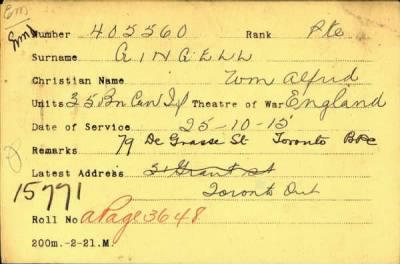 Em
Emd
Number 405560 Rank Pte
Surname GINGELL
Christian Name Wm Alfrid
Units 35 Bn Can Inf Theatre of War England
Date of Service 25-10-15
Remarks 79 De Grasse St Toronto
Latest Address 31 Grant St
15771 Toronto Ont
Roll No a Page 3648
200m.-2-21.M.